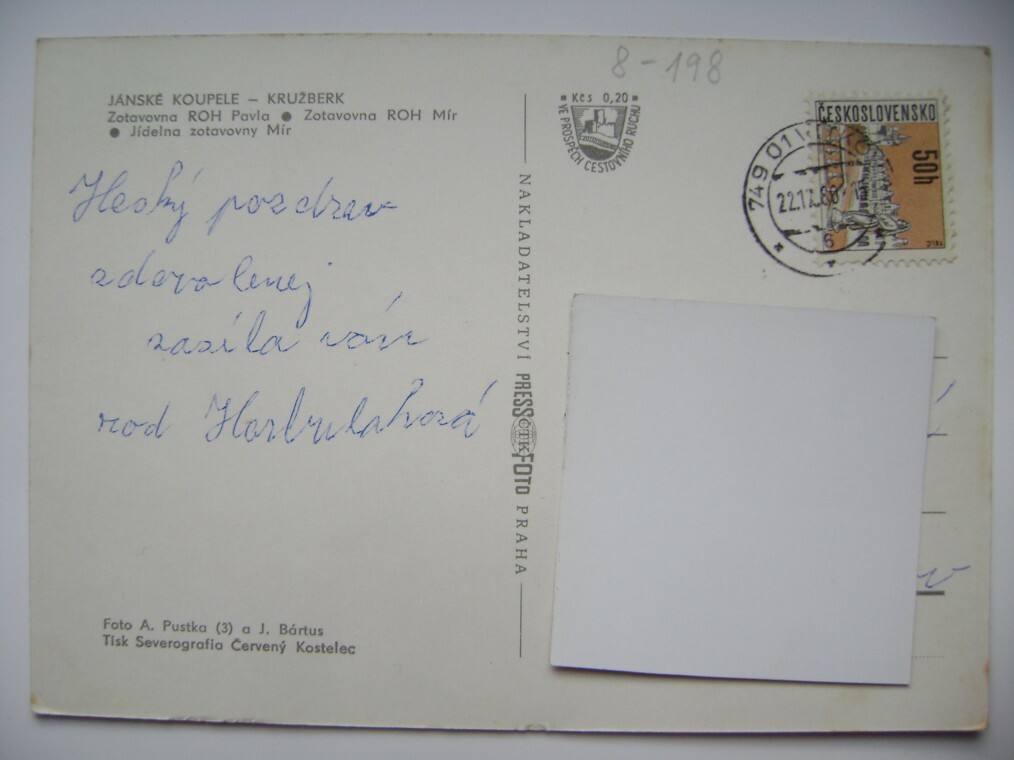 8-198
JÁNSKÉ KOUPELE – KRUŽBERK
Zotavovna ROH Pavla ● Zotavovna ROH Mír
● Jídelna zotavovny Mír
Heský pozdrav
zdovolenej
zasíla vám
rod
NAKLADATELSTVÍ PRESSFOTO PRAHA
ČTK
Foto A. Pustka (3) a J. Bártus
Tisk Severografia Červený Kostelec
Kčs 0,20
VE PROSPĚCH CESTOVNÍHO RUCHU
749 01
22.IX.86
6
ČESKOSLOVENSKO
50h
TELČ